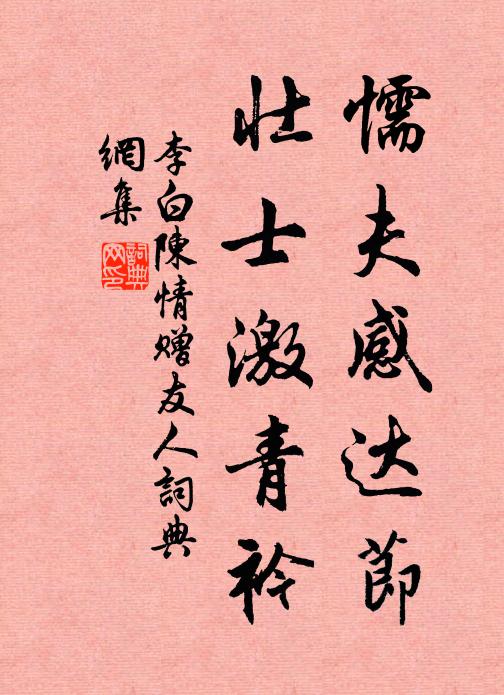 懦夫感达節
壮士激青衿
李白陳情赠友人詞典
網集
詞典
网印